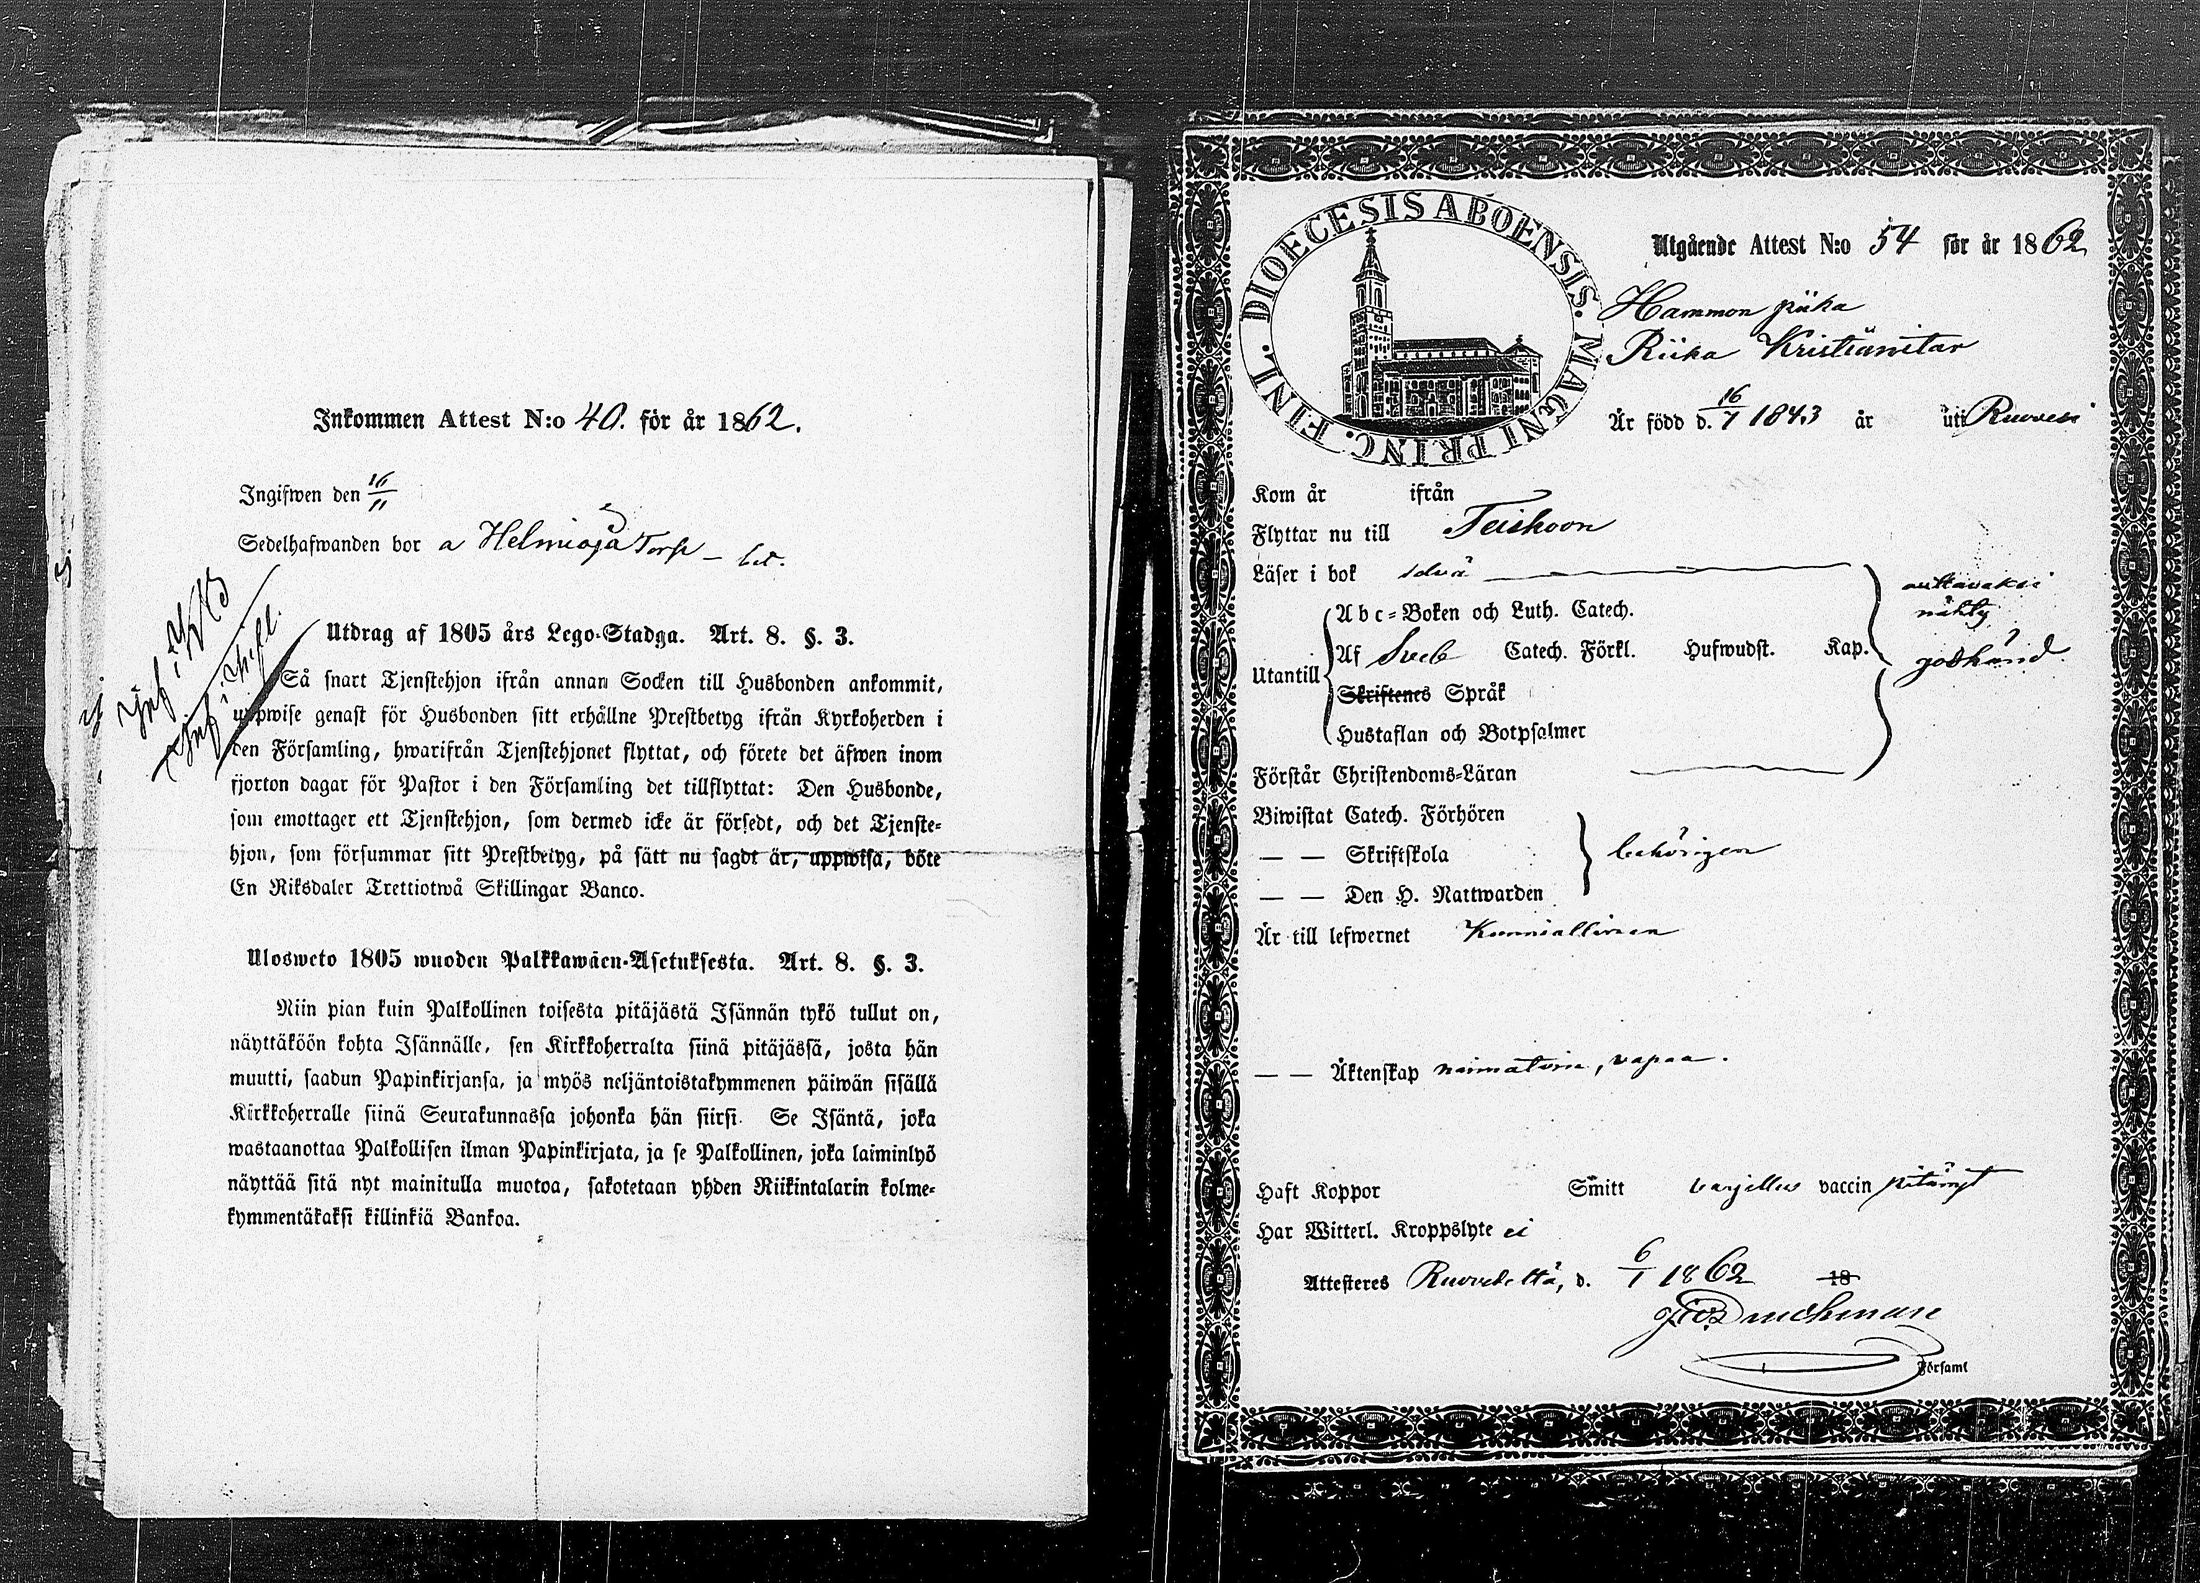 Inkommen Attest N:o 40. för år 1862.
Ingifwen den 16/11
Sedelhafwanden bor a Helmioja Torp –
Utdrag af 1805 års Lego-Stadga. Art. 8. §. 3.
Så snart Tjenstehjon ifrån annan Socken till Husbonden ankommit,
uppwise genast för Husbonden sitt erhållne Prestbetyg ifrån Kyrkoherden i
den Församling, hwarifrån Tjenstehjonet flyttat, och förete det äfwen inom
fjorton dagar för Pastor i den Församling det tillflyttat: Den Husbonde,
som emottager ett Tjenstehjon, som dermed icke är försedt, och det Tjenste-
hjon, som försummar sitt Prestbetyg, på sätt nu sagdt är, uppwisa, böte
En Riksdaler Trettiotwå Skillingar Banco.
Ulosweto 1805 wuoden Palkkawäen-Asetuksesta. Art. 8. §. 3.
Niin pian kuin Palkollinen toisesta pitäjästä Isännän tykö tullut on,
näyttäköön kohta Isännälle, sen Kirkkoherralta siinä pitäjässä, josta hän
muutti, saadun Papinkirjansa, ja myös neljäntoistakymmenen päiwän sisällä
Kirkkoherralle siinä Seurakunnassa johonka hän siirsi. Se Isäntä, joka
wastaanottaa Palkollisen ilman Papinkirjata, ja se Palkollinen, joka laiminlyö
näyttää sitä nyt mainitulla muotoa, sakotetaan yhden Riikintalarin kolme-
kymmentäkaksi killinkiä Bankoa.
DIOECESIS ABOENSIS. MAGNI PRINC. FINL.
Utgående Attest N:o 54 för år 1862
Hammon piika
Riika Kristiäntar
Är född d. 16/7 1843 år uti Ruovesi
Kom år ifrån
Flyttar nu till Teiskoon
Läser i bok selvä
Abc-Boken och Luth. Catech.
Utantill Af Sveb Catech. Förkl. Hufwudst. Kap.
Skriftenes Språk
Hustaflan och Botpsalmer
auttavaksi
nähty
Förstår Christendoms-Läran
Biwistat Catech. Förhören
— — Skriftskola
— — Den H. Nattwarden
Är till lefwernet Kunniallinen
— — Äktenskap naimatoin, vapaa.
Haft Koppor Smitt varjellus vaccin pitämyt
Har Witterl. Kroppslyte ei
Attesteres Ruovedeltä, d. 6/1 1862 18
Församl